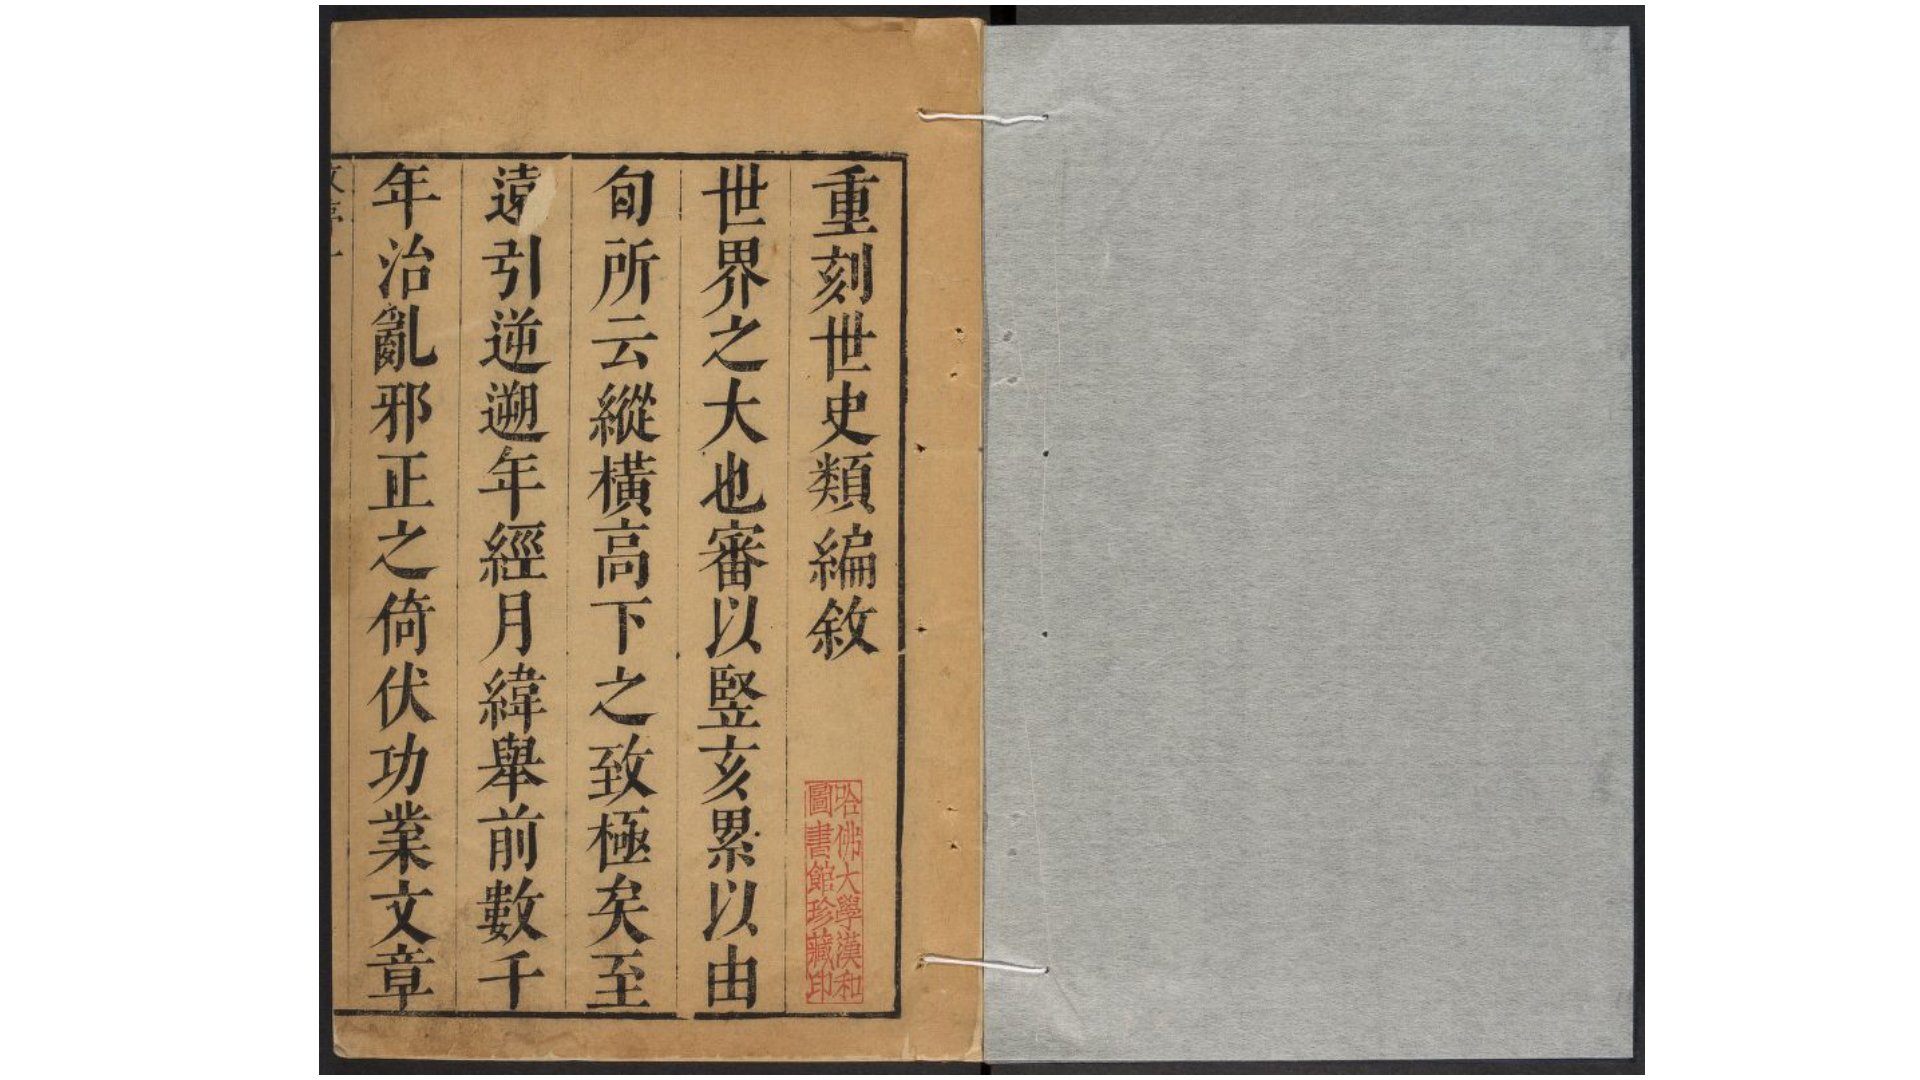 重刻世史類編敘
哈佛大學漢和
圖書館珍藏印
世界之大也審以竪亥累以由
旬所云縱橫高下之致極矣至
遠引逆遡年經月緯舉前數千
年治亂邪正之倚伏功業文章